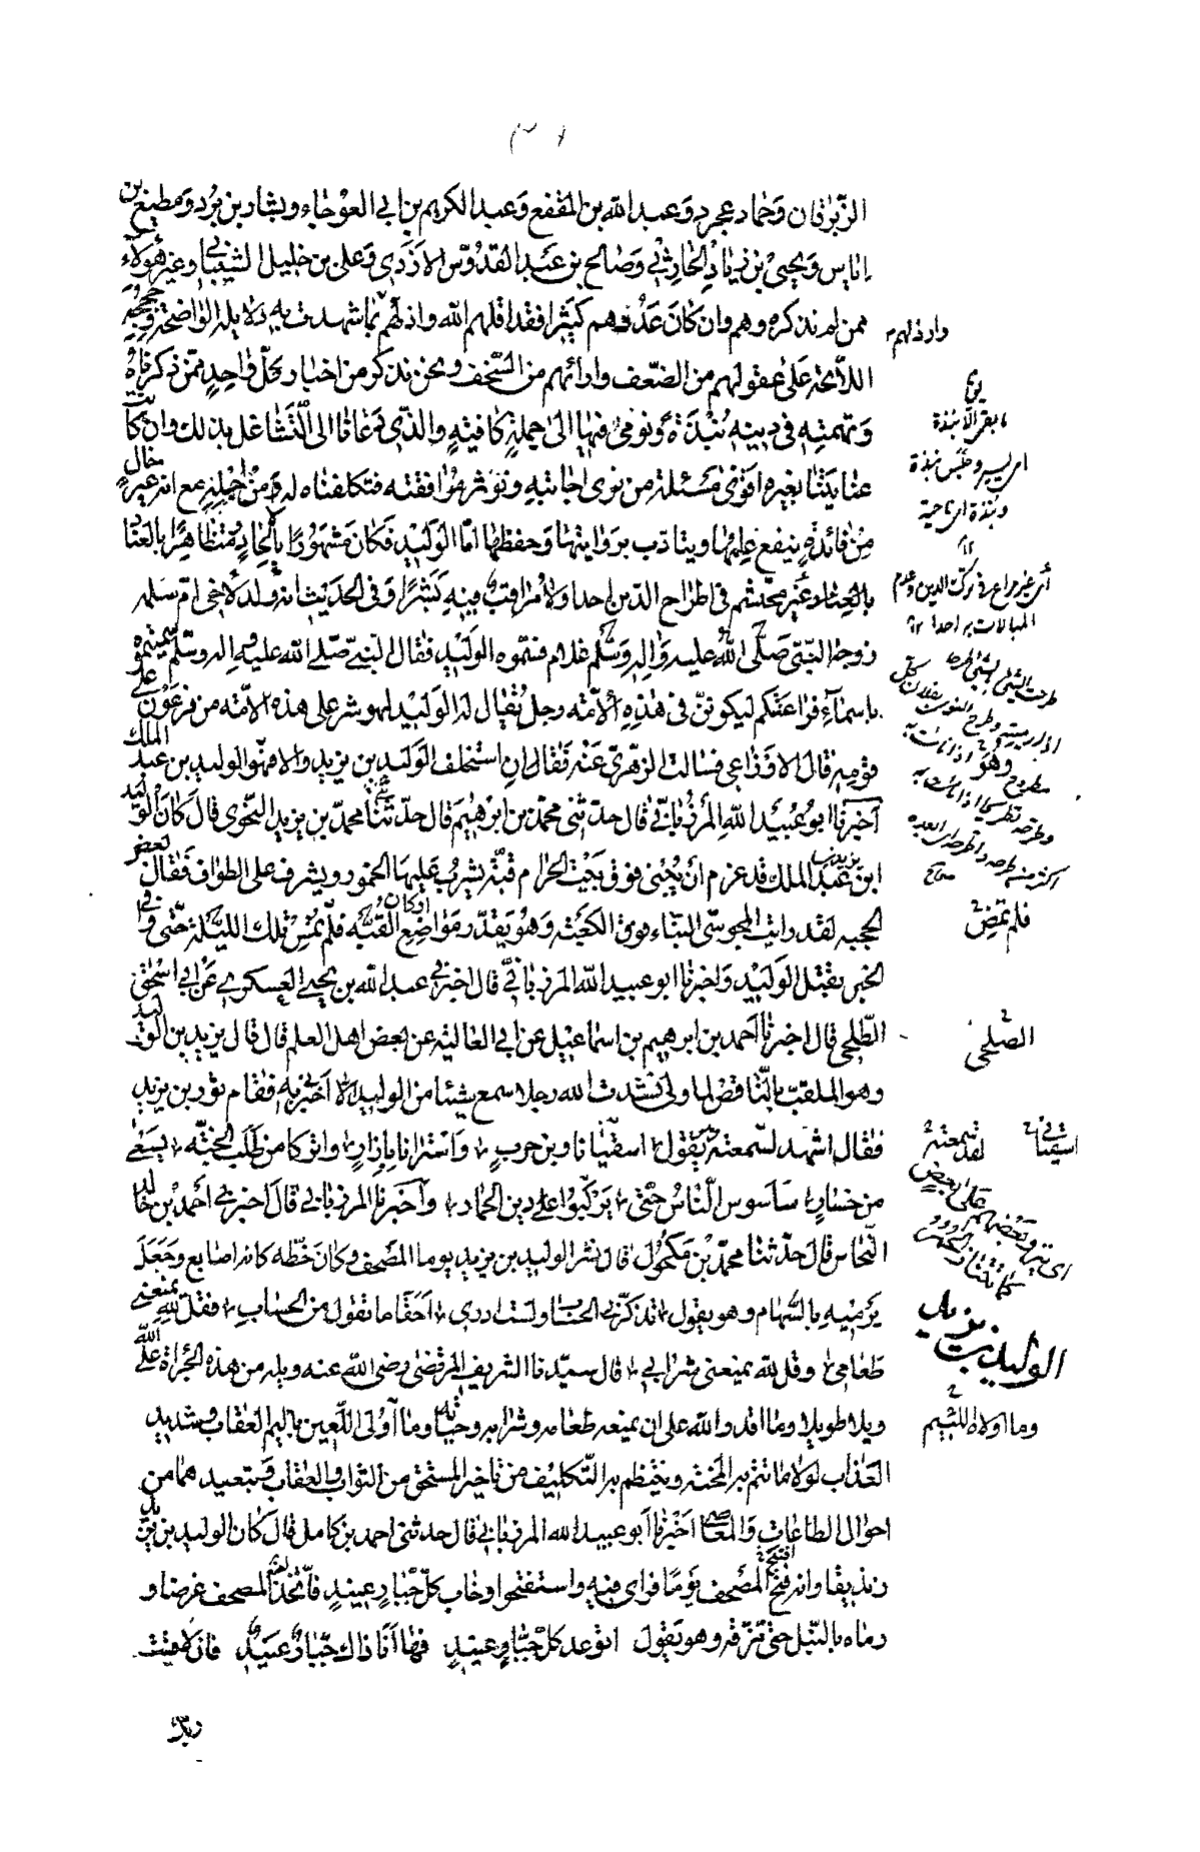 الزبرقان وحماد عجرد وعبد الله بن المقفع وعبد الكريم بن ابي العوجاء وبشار بن برد ومطيع بن
اياس ويحيى بن زياد الحارثي وصالح بن عبد القدوس الازدي وعلي بن خليل الشيباني وغير هؤلاء
ممن لم نذكره وهم وان كان عددهم كثيرا فقد اقلهم الله واذلهم بما شهدت به دلايله الواضحة وحججه
وارذلهم
اللائحة على عقولهم من الضعف وارائهم من السخف ونحن نذكر من اخبار كل واحد ممن ذكرناه
وتهمته في دينه نبذة ونومئ فيها الى جملة كافية والذي دعانا الى التشاغل بذلك وان كانت
عنايتنا بغيره اقوى مسئلة من نرى اجابته ونؤثر موافقته فتكلفناه له من اجله مع انه غير خال
من فائدة ينفع علمها ويتادب بروايتها وحفظها اما الوليد فكان مشهورا بالالحاد متظاهرا بالعناد
غير محتشم في اطراح الدين احدا ولا مراقب فيه بشرا وفي الحديث انه ولد لاخي ام سلمه
زوجة النبي صلى الله عليه واله وسلم غلام فسموه الوليد فقال النبي صلى الله عليه واله وسلم سميتموه
باسماء فراعنتكم ليكونن في هذه الامة رجل يقال له الوليد لهو شر على هذه الامه من فرعون على
قومه قال الاوزاعي فسالت الزهري عنه فقال ان استخلف الوليد بن يزيد والا فهو الوليد بن عبد الملك
اخبرنا ابو عبيد الله المرزباني قال حدثني محمد بن ابرهيم قال حدثنا محمد بن يزيد النحوي قال كان الوليد
بن يزيد بن عبد الملك قد عزم ان يبنى فوق بيت الحرام قبة يشرب عليها الخمور ويشرف على الطواف فقال بعض
الحجبه لقد رايت المجوسي البناء فوق الكعبه وهو يقدر مواضع اركان القبه فلم تمس تلك الليلة حتى وافى
فلم تمض
الخبر بقتل الوليد واخبرنا ابو عبيد الله المرزباني قال اخبرني عبد الله بن يحيى العسكري عن ابي اسحق
الطلحي قال اخبرنا احمد بن ابرهيم بن اسماعيل عن ابي العالية عن بعض اهل العلم قال قال يزيد بن الوليد
الصلحي
وهو الملقب بالناقص لما ولي نشدت الله رجلا سمع شيئا من الوليد الا اخبر به فقام ثور بن يزيد
فقال اشهد لسمعته يقول اسقياني وابن حرب واسترانا بازار واتركا من طلب الجنه يسعى
من خسار ساسوس الناس حتى يركبوا على دين الحمار واخبرنا المرزباني قال اخبرني احمد بن خالد
النحاس قال حدثنا محمد بن مكحول قال نشر الوليد بن يزيد يوما المصحف وكان خطه كانه اصابع وجعل
يرميه بالسهام وهو يقول تذكرني الحساب ولست ادري احقا ما تقول من الحساب فقل لله يمنعني
الوليد بن يزيد
طعامي وقل لله يمنعني شرابي قال سيدنا الشريف المرتضى رضي الله عنه ويله من هذه الجراة على الله
ويلا طويلا وما اقدر الله على ان يمنعه طعامه وشرابه وحياته وما اولى اللعين باليم العقاب وشديد
وما اولاه اللئيم
العذاب لولا ما تتم به المحنة وينتظم به التكليف من تاخير المستحق من الثواب والعقاب وتبعيدهما من
احوال الطاعات والمعاصي اخبرنا ابو عبيد الله المرزباني قال حدثني احمد بن كامل قال كان الوليد بن يزيد
زنديقا وانه فتح المصحف يوما فراى فيه واستفتحوا وخاب كل جبار عنيد فاتخذ المصحف غرضا و
رماه بالنبل حتى مزقه وهو يقول اتوعد كل جبار عنيد فها انا ذاك جبار عنيد فان لاقيت
ربك